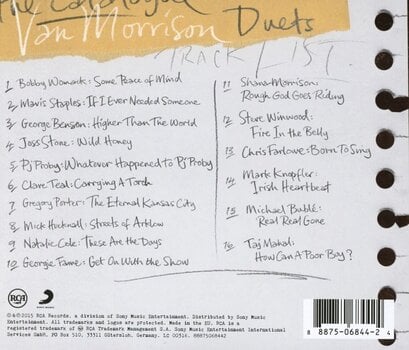 the Catalogue
Van Morrison Duets
TRACK LIST
1 Bobby Womack: Some Peace of Mind
2 Mavis Staples: If I Ever Needed Someone
3 George Benson: Higher Than The World
4 Joss Stone: Wild Honey
5 Pj Proby: Whatever Happened to Pj Proby
6 Clare Teal: Carrying A Torch
7 Gregory Porter: The Eternal Kansas City
8 Mick Hucknall: Streets of Arklow
9 Natalie Cole: These Are the Days
10 Georgie Fame: Get On With the Show
11 Shana Morrison:
Rough God Goes Riding
12 Steve Winwood:
Fire In the Belly
13 Chris Farlowe: Born To Sing
14 Mark Knopfler:
Irish Heartbeat
15 Michael Bublé:
Real Real Gone
16 Taj Mahal:
How Can A Poor Boy?
RCA
SONY MUSIC
℗ & © 2015 RCA Records, a division of Sony Music Entertainment. Distributed by Sony Music
Entertainment. All trademarks and logos are protected. Made in the EU. RCA is a
registered trademark of RCA Trademark Management S.A. Sony Music Entertainment International
Services GmbH. PO Box 510, 33311 Gütersloh, Germany. LC 00316. 88875068442
8 88750 68442 4